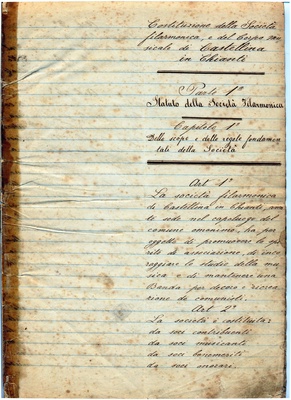 Costituzione della Società
filarmonica, e del Corpo mu-
sicale di Castellina
in Chianti
Parte 1ª
Statuto della Società Filarmonica
Capitolo 1º
Dello scopo e delle regole fondamen-
tali della Società
Art 1º
La società filarmonica
di Castellina in Chianti, aven-
te sede nel capoluogo del
comune omonimo, ha per
oggetto di promuovere lo spi-
rito di associazione, di inco-
raggiare lo studio della mu-
sica e di mantenere una
Banda per decoro e ricrea-
zione de comunisti.
Art 2º
La società è costituita:
da soci contribuenti
da soci musicanti
da soci benemeriti
da soci onorari.